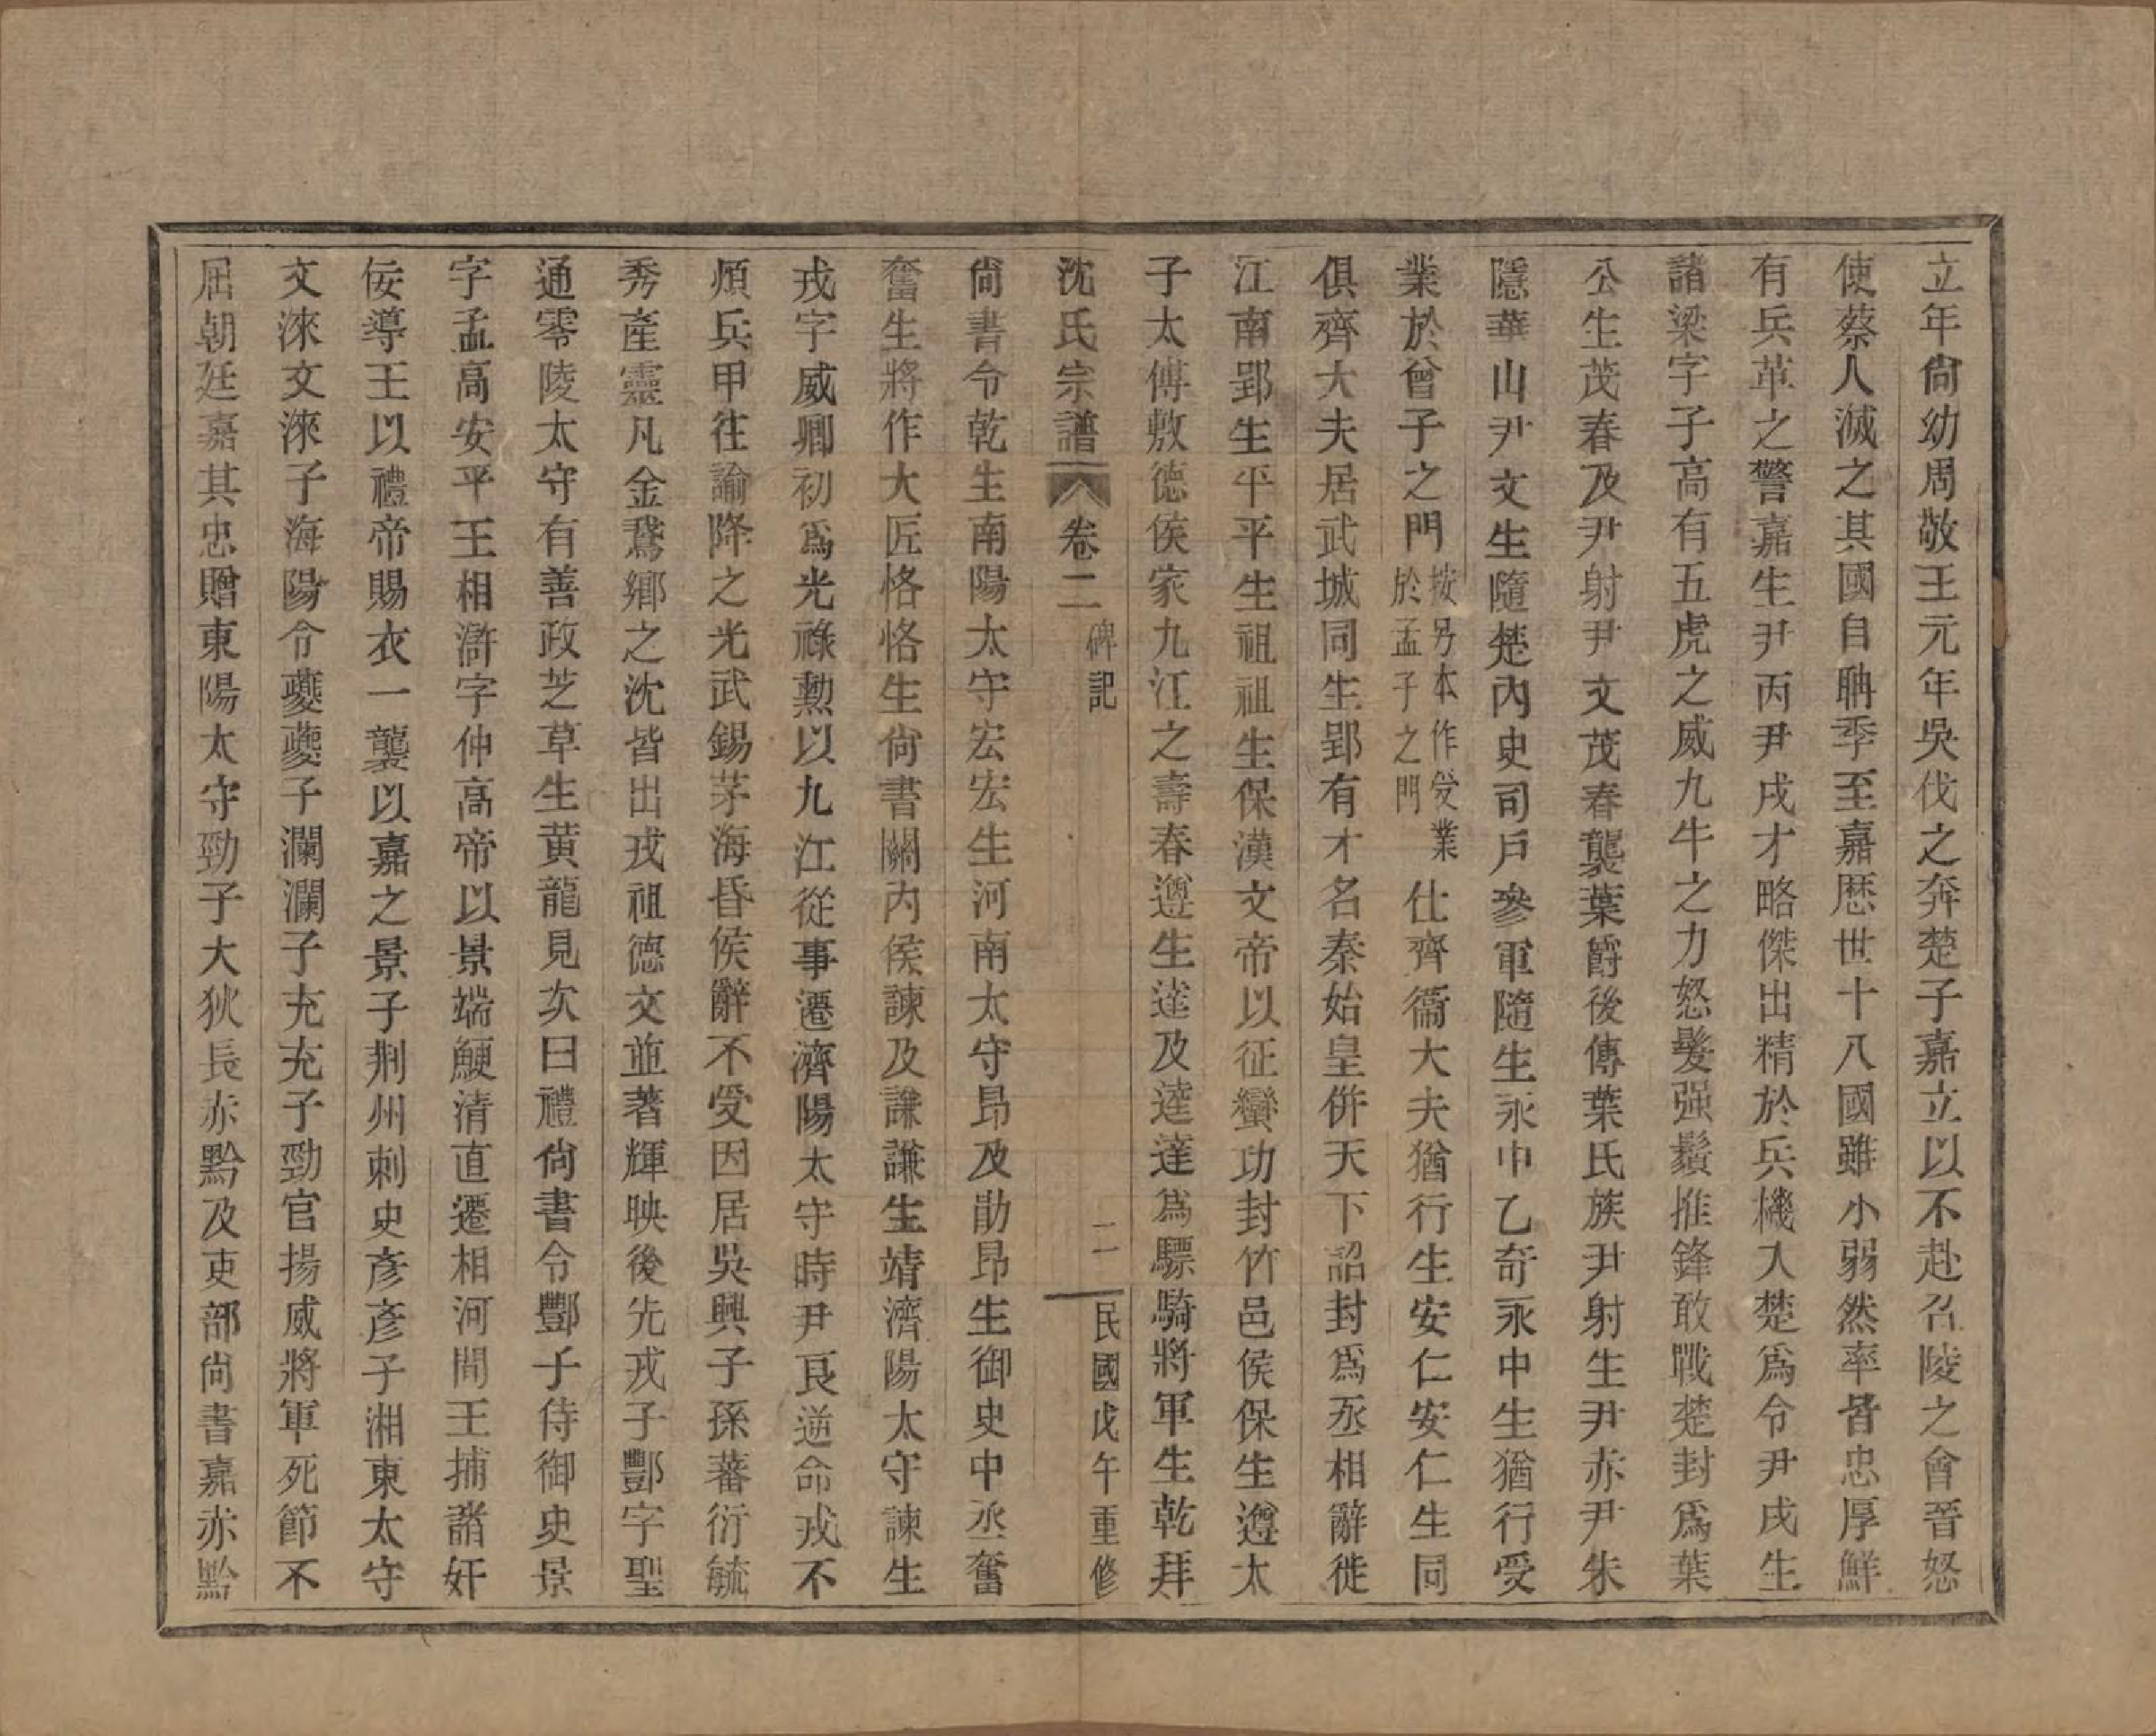 立年尙幼周敬王元年吳伐之奔楚子嘉立以不赴召陵之會晉怒
使蔡人滅之其國自聃季至嘉歷世十八國雖小弱然率皆忠厚鮮
有兵革之警嘉生尹丙尹戌才略傑出精於兵機入楚爲令尹戌生
諸梁字子高有五虎之威九牛之力怒髮强鬚推鋒敢戰楚封爲葉
公生茂春及尹射尹文茂春襲葉爵後傳葉氏族尹射生尹赤尹朱
隱華山尹文生隨楚內史司戶參軍隨生永中乙奇永中生猶行受
業於曾子之門按另本作受業於孟子之門仕齊衞大夫猶行生安仁安仁生同
俱齊大夫居武城同生郢有才名秦始皇併天下詔封爲丞相辭徙
江南郢生平平生祖祖生保漢文帝以征蠻功封竹邑侯保生遵太
子太傅敷德侯家九江之壽春遵生達及達達爲驃騎將軍生乾拜
沈氏宗譜 卷二 碑記 二 民國戊午重修
尙書令乾生南陽太守宏宏生河南太守昂及勛昂生御史中丞奮
奮生將作大匠恪恪生尙書關內侯諫及謙謙生靖濟陽太守諫生
戎字威卿初爲光祿勲以九江從事遷濟陽太守時尹良逆命戎不
煩兵甲往諭降之光武錫茅海昏侯辭不受因居吳興子孫蕃衍毓
秀產靈凡金鵞鄉之沈皆出戎祖德文並著輝映後先戎子酆字聖
通零陵太守有善政芝草生黄龍見次曰禮尙書令酆子侍御史景
字孟高安平王相滸字仲高帝以景端鯁清直遷相河間王捕諸奸
佞導王以禮帝賜衣一襲以嘉之景子荆州刺史彥彥子湘東太守
文淶文淶子海陽令夔夔子瀾瀾子充充子勁官揚威將軍死節不
屈朝廷嘉其忠贈東陽太守勁子大狄長赤黔及吏部尙書嘉赤黔